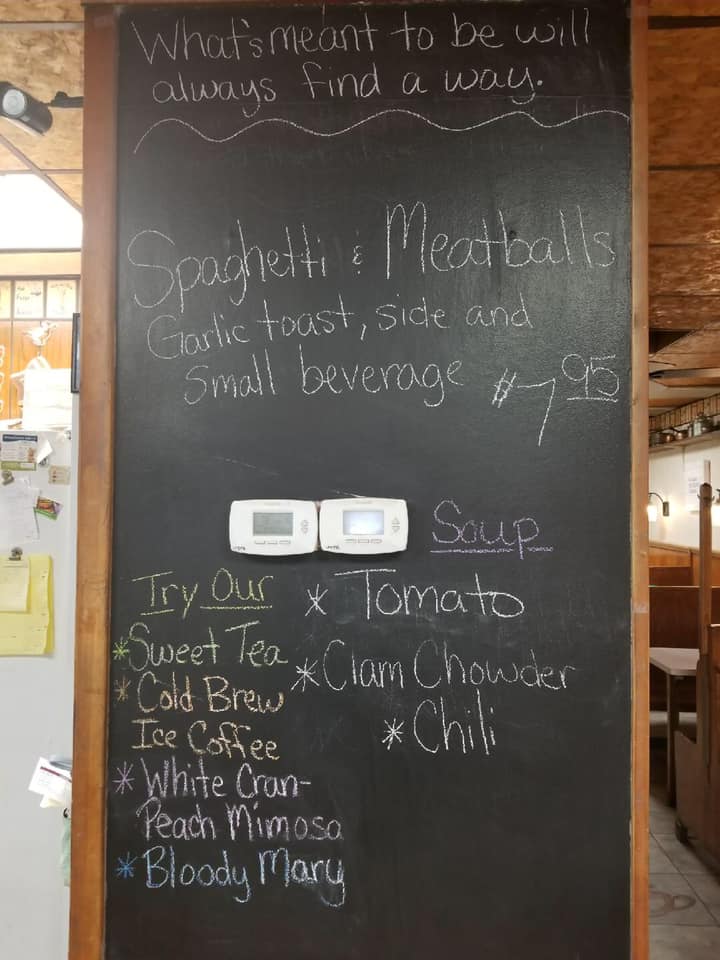 What's meant to be will
always find a way.
Spaghetti & Meatballs
Garlic toast, side and
Small beverage $7 95
Soup
* Tomato
* Clam Chowder
* Chili
Try Our
* Sweet Tea
* Cold Brew
Ice Coffee
* White Cran-
Peach Mimosa
* Bloody Mary